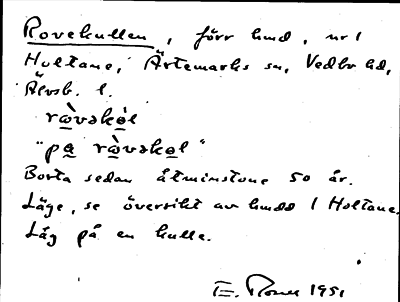 Rovekullen, förr hmd, nr 1
Holtane, Ärtemarks sn, Vedbo hd,
Älvsb. l.
rὼvəkè̱l
"pa̱ rὼvəke̱l"
Borta sedan åtminstone 50 år.
Läge, se översikt av hmdd / Holtane.
Låg på en kulle.
1951